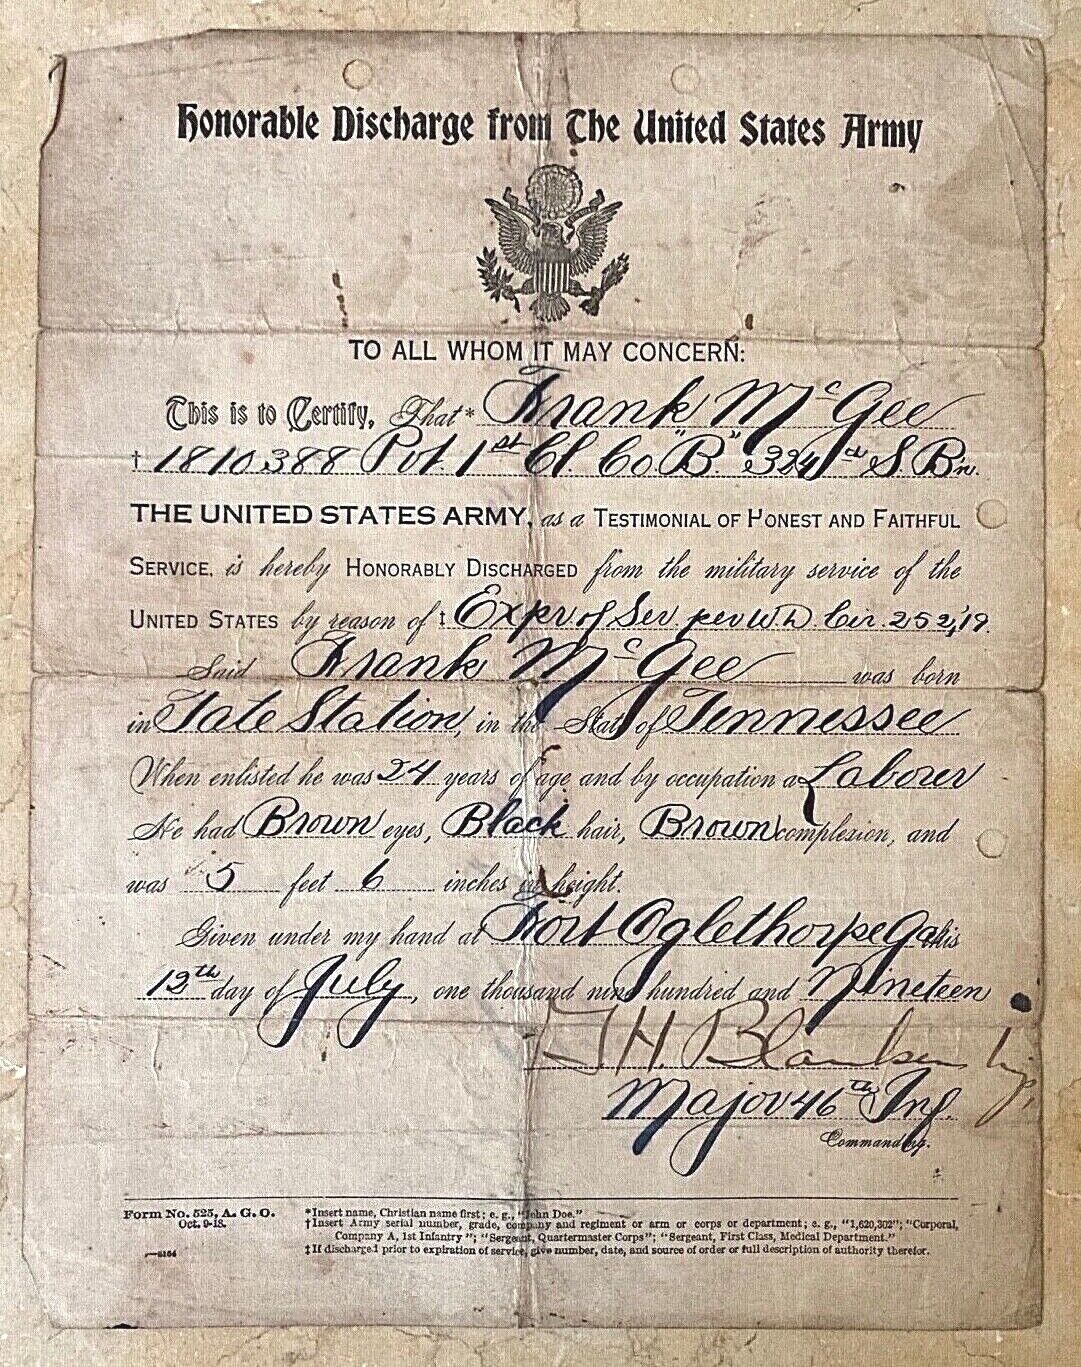 Honorable Discharge from The United States Army
TO ALL WHOM IT MAY CONCERN:
This is to Certify, That* Frank McGee
† 1810388 Pvt. 1st Cl. Co. "B" 324th S. Bn.
THE UNITED STATES ARMY, as a TESTIMONIAL OF HONEST AND FAITHFUL
SERVICE, is hereby HONORABLY DISCHARGED from the military service of the
UNITED STATES by reason of ‡ Expr of Ser. per W.D. Cir. 252,'19.
Said Frank McGee was born
in Tate Station, in the State of Tennessee
When enlisted he was 24 years of age and by occupation a Laborer
He had Brown eyes, Black hair, Brown complexion, and
was 5 feet 6 inches in height.
Given under my hand at Fort Oglethorpe Ga. this
12th day of July, one thousand nine hundred and Nineteen
H.
Major 46th Inf.
Commanding.
Form No. 525, A. G. O.
Oct. 9-18.
*Insert name, Christian name first; e. g., "John Doe."
†Insert Army serial number, grade, company and regiment or arm or corps or department; e. g., "1,620,302"; "Corporal,
Company A, 1st Infantry"; "Sergeant, Quartermaster Corps"; "Sergeant, First Class, Medical Department."
‡If discharged prior to expiration of service, give number, date, and source of order or full description of authority therefor.